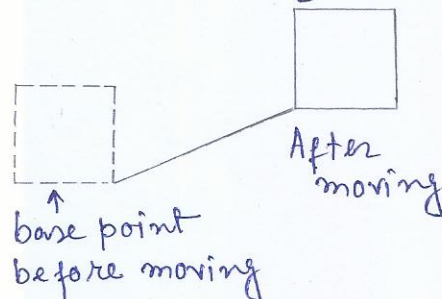 After
moving
↑
base point
before moving